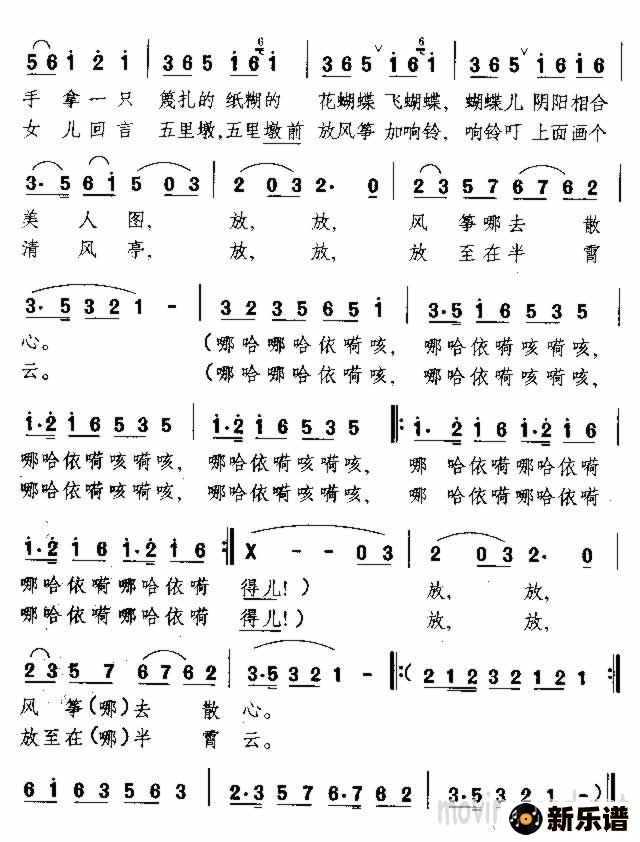 5 6 i 2 i 3 6 5 i 6 i 6 3 6 5 ˅ i 6 i 6 3 6 5 i 6 i 6
手 拿 一 只 篾扎的 纸糊的 花蝴蝶 飞蝴蝶, 蝴蝶儿 阴阳相合
女 儿 回 言 五里墩,五里墩前 放风筝 加响铃, 响铃叮 上面画个
3· 5 6 i 5 0 3 2 0 3 2· 0 2 3 5 7 6 7 6 2
美 人 图, 放, 放, 风 筝哪去 散
清 风 亭, 放, 放, 放 至在半 霄
3· 5 3 2 1 - 3 2 3 5 6 5 i 3·5 1 6 5 3 5
心。 (哪哈哪哈依嗬咳, 哪哈依嗬咳嗬咳,
云。 (哪哈哪哈依嗬咳, 哪哈依嗬咳嗬咳,
i·2 i 6 5 3 5 i·2 i 6 5 3 5 i·2 i 6 i·2 i 6
哪哈依嗬咳嗬咳, 哪哈依嗬咳嗬咳, 哪 哈依嗬哪哈依嗬
哪哈依嗬咳嗬咳, 哪哈依嗬咳嗬咳, 哪 哈依嗬哪哈依嗬
i·2 i 6 i·2 i 6 X - - 0 3 2 0 3 2· 0
哪哈依嗬哪哈依嗬 得儿!) 放, 放,
哪哈依嗬哪哈依嗬 得儿!) 放, 放,
2 3 5 7 6 7 6 2 3·5 3 2 1 - ( 2 1 2 3 2 1 2 1
风 筝(哪)去 散 心。
放至在(哪)半 霄 云。
6 i 6 3 5 6 3 2·3 5 7 6·7 6 2 3·5 3 2 1 - )
新乐谱